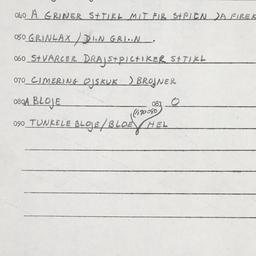 040 A GRINER S+TIKL MIT FIR S+PIEN )A FIREK
050 GRINLAX / GRI..N .
060 S+VARCER DRAJS+PICTIKER S+TIKL
070 CIMERING OJSKUK ) BROJNER
080A BLOJE 083 O
(190-050)
090 TUNKELE BLOJE/BLOE HEL